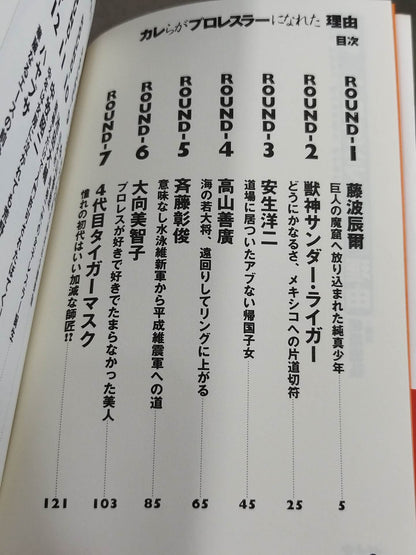 カレらがプロレスラーになれた理由
目次
ROUND-1
藤波辰爾
巨人の魔窟へ放り込まれた純真少年
5
ROUND-2
獣神サンダー・ライガー
どうにかなるさ、メキシコへの片道切符
25
ROUND-3
安生洋二
道場に居ついたアブない帰国子女
45
ROUND-4
高山善廣
海の若大将、遠回りしてリングに上がる
65
ROUND-5
斉藤彰俊
意味なし水泳維新軍から平成維震軍への道
85
ROUND-6
大向美智子
プロレスが好きで好きでたまらなかった美人
103
ROUND-7
4代目タイガーマスク
憧れの初代はいい加減な師匠!?
121